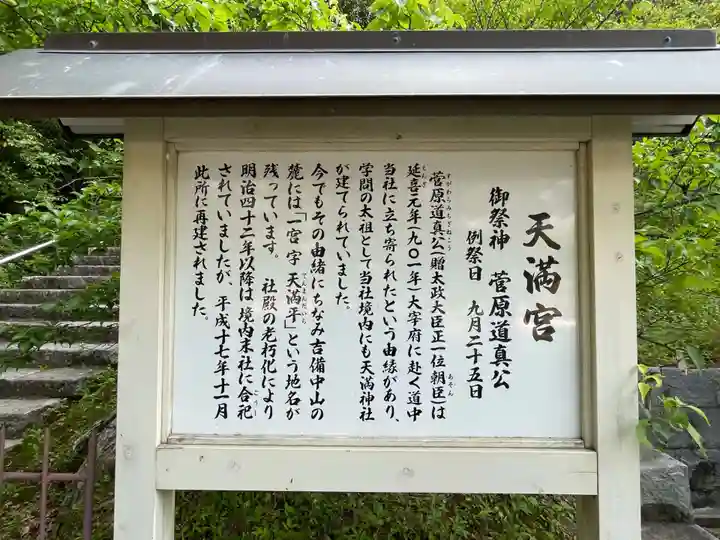 天満宮
御祭神 菅原道真公
例祭日 九月二十五日
菅原道真公(贈太政大臣正一位朝臣)は
延喜元年(九〇一年)大宰府に赴く道中
当社に立ち寄られたという由縁があり、
学問の太祖として当社境内にも天満神社
が建てられていました。
今でもその由緒にちなみ吉備中山の
麓には「一宮字 天満平」という地名が
残っています。 社殿の老朽化により
明治四十二年以降は境内末社に合祀
されていましたが、平成十七年十一月
此所に再建されました。